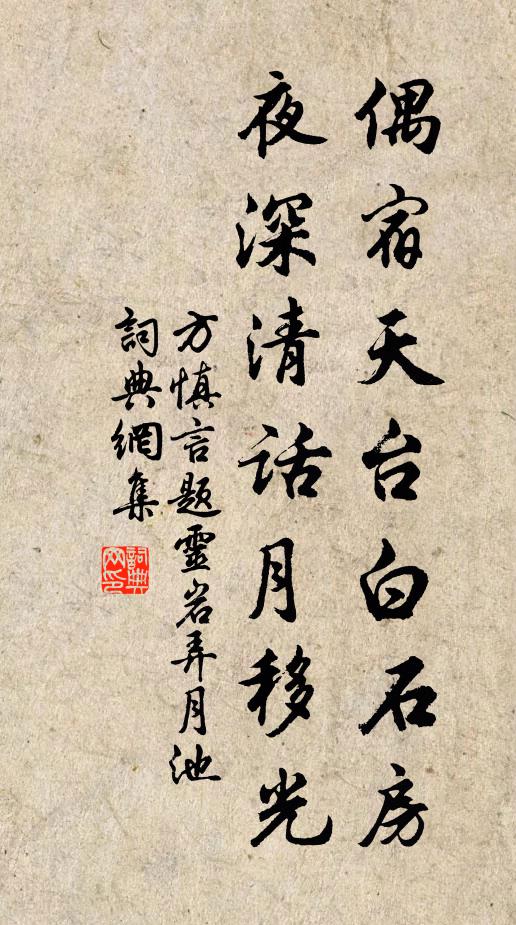 偶宿天台白石房
夜深清話月移光
方慎言題靈岩弄月池
詞典網集
詞典网印